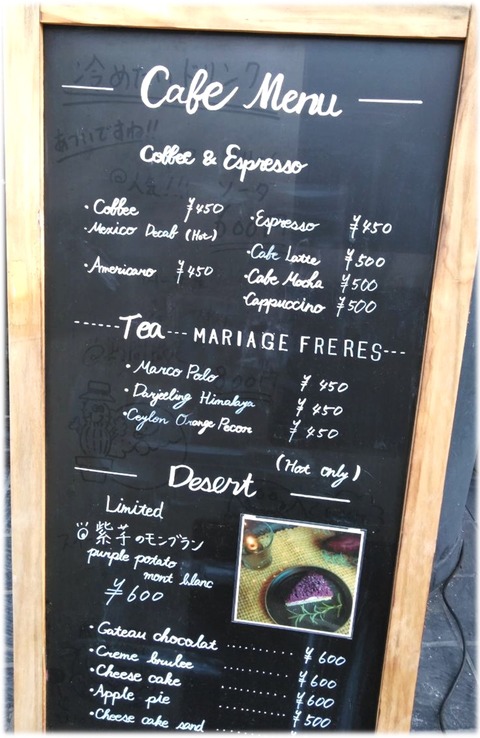 Cafe Menu
Coffee & Espresso
・Coffee ¥450
・Mexico Decab (Hot)
・Americano ¥450
・Espresso ¥450
・Cafe Latte ¥500
・Cafe Mocha ¥500
・Cappuccino ¥500
Tea MARIAGE FRERES
・Marco Polo ¥450
・Darjeeling Himalaya ¥450
・Ceylon Orange Pecon ¥450
(Hot Only)
Desert
Limited
紫芋のモンブラン
purple potato
mont blanc
¥600
・Gateau chocolat ........... ¥600
・Creme brulee ........ ¥600
・Cheese cake .......... ¥600
・Apple pie .......... ¥500
・Cheese cake sand
冷めたいドリンク
あついですね!!